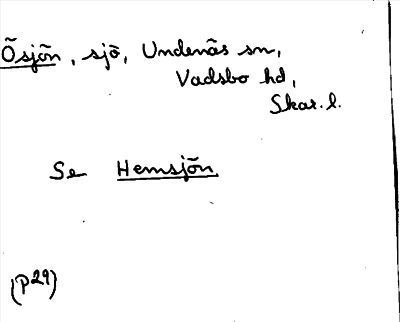 Ösjön, sjö, Undenäs sn,
Vadsbo hd,
Skar. l.
Se Hemsjön.
(P29)